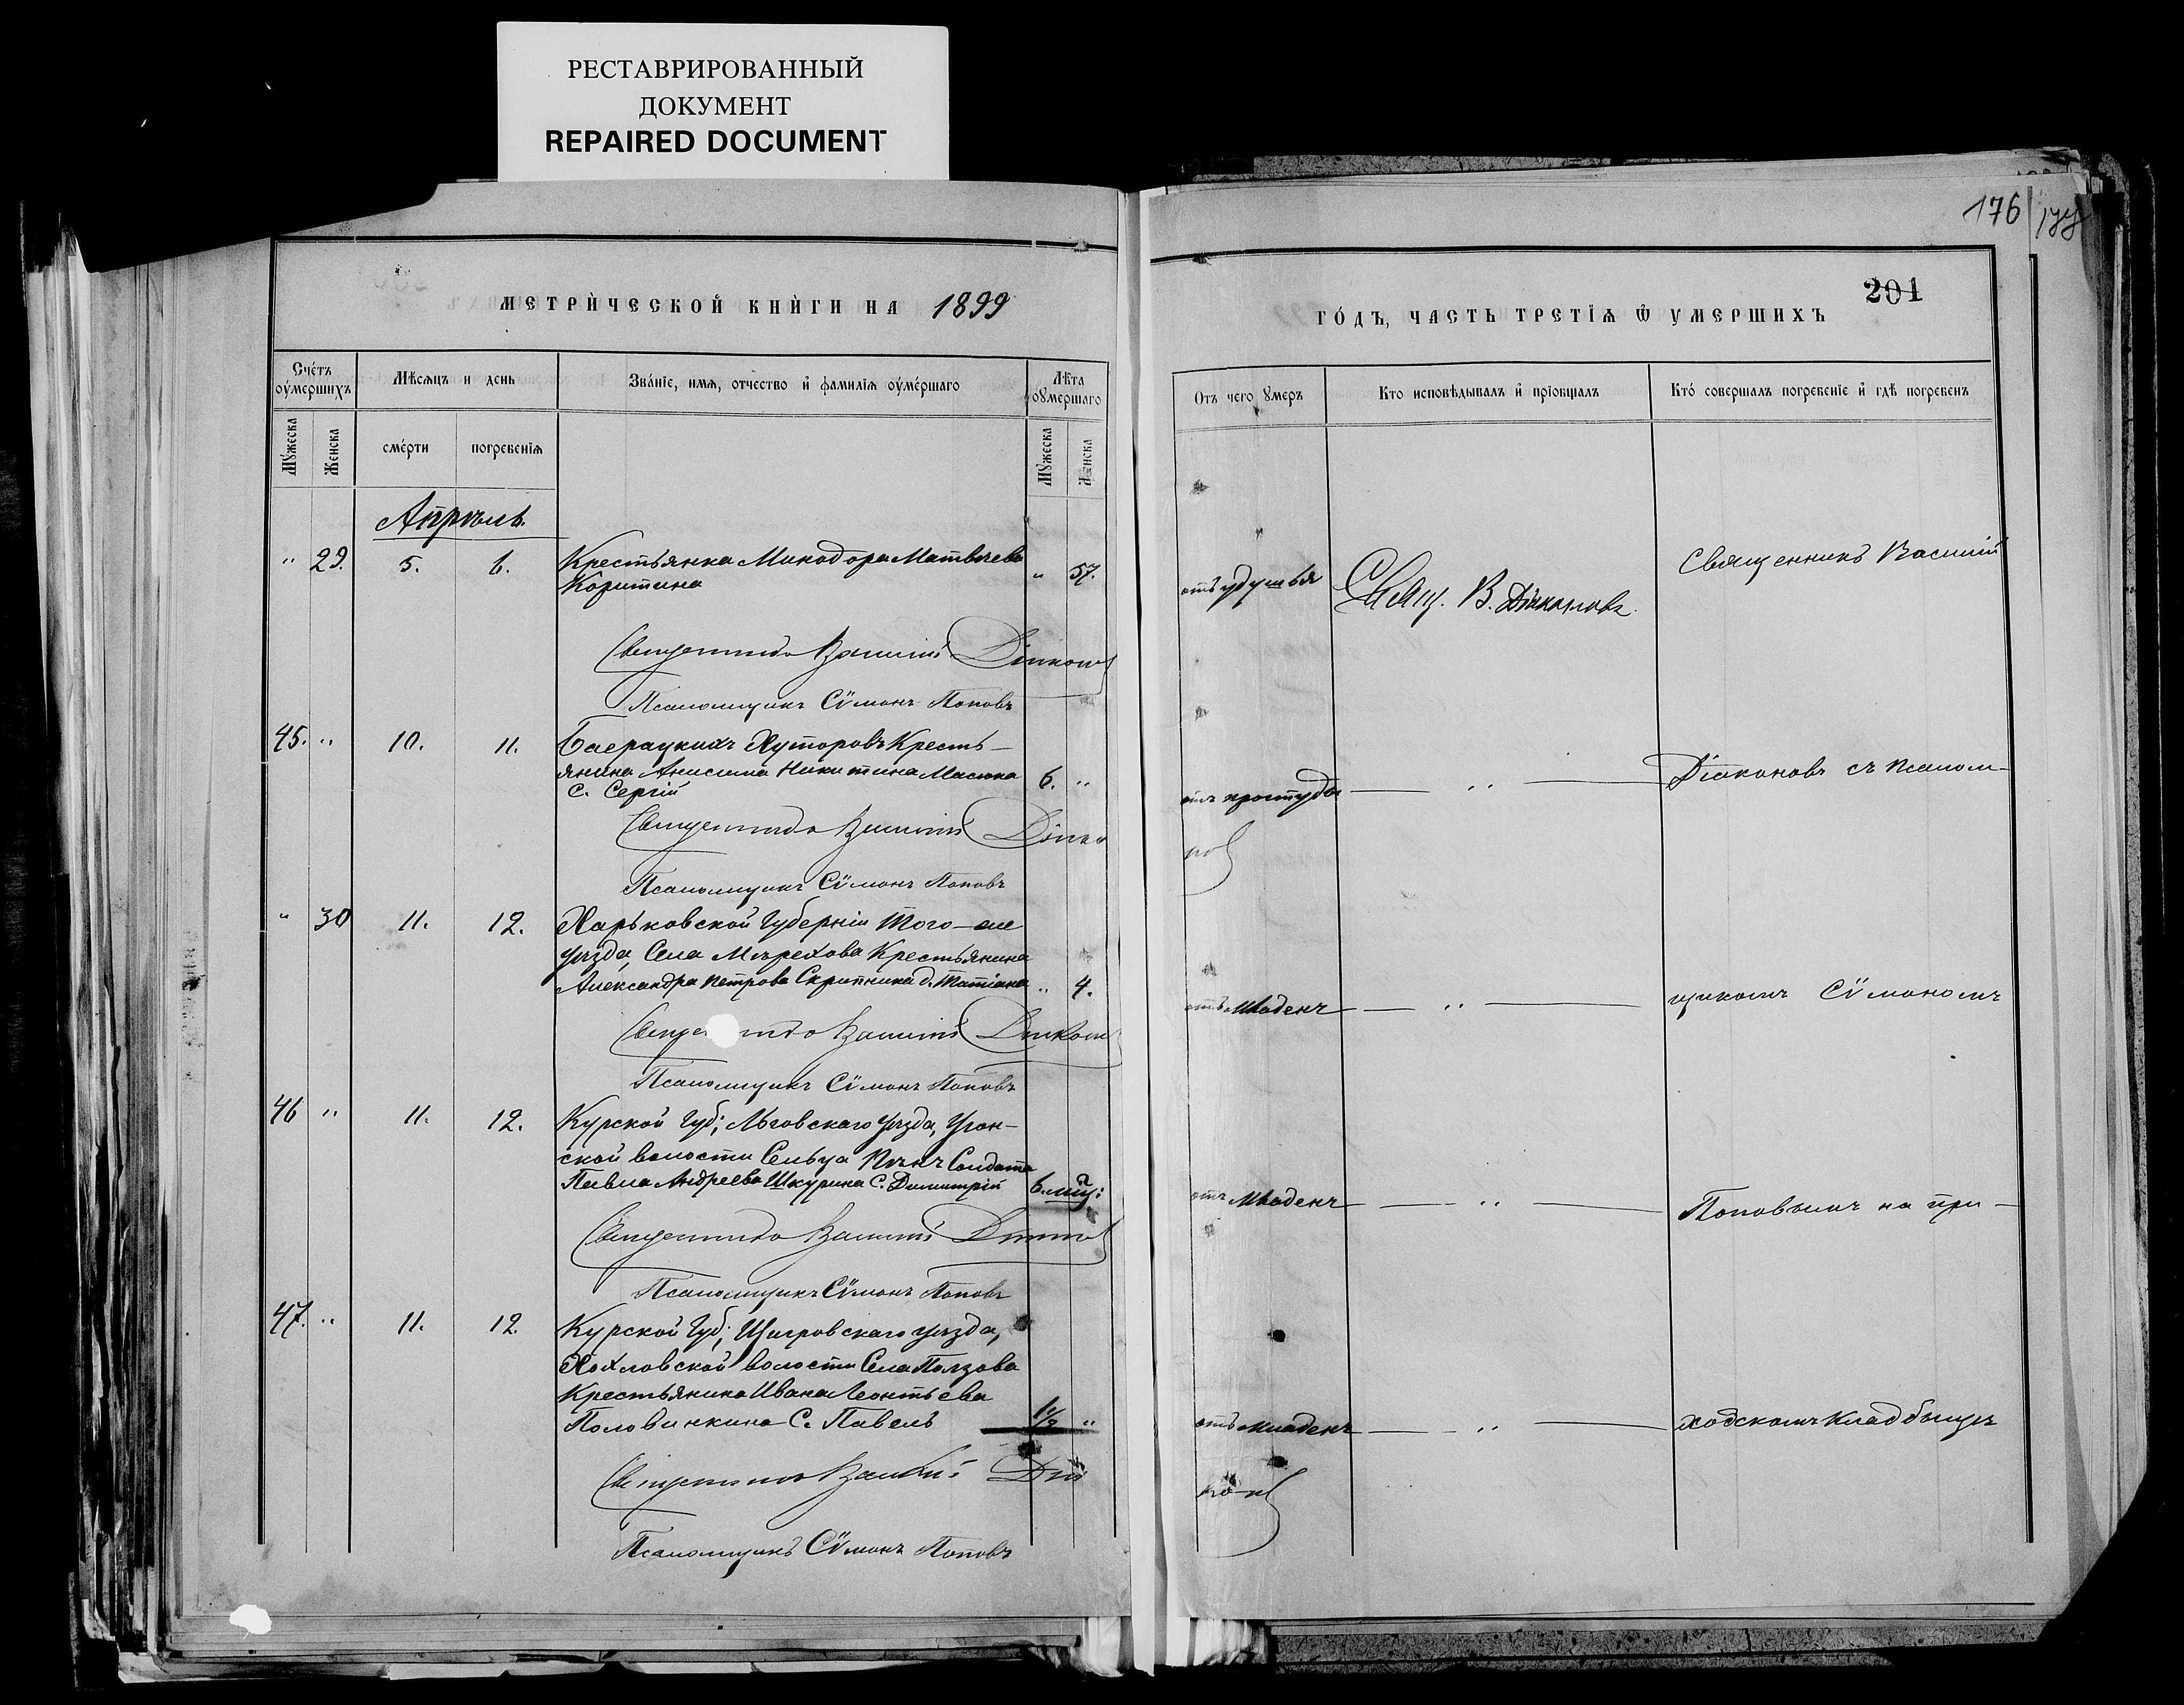 РЕСТАВРИРОВАННЫЙ
ДОКУМЕНТ
REPAIRED DOCUMENT
176
201
МЕТРИ́ЧЕСКОЙ КНИ́ГИ НА 1899
ГО́ДЪ, ЧАСТЬ ТРЕТІѦ Ѿ УМЕРШИХЪ
Сче́тъ оу҆ме́ршихъ
Мѣсѧцъ и день
Зва́ніе, имѧ, отчество и҆ фамиліѧ оу҆ме́ршаго
Лѣта оу҆мершаго
Отъ чего умеръ
Кто исповѣдывалъ и҆ пріобщалъ
Кто́ совершалъ погребеніе и҆ гдѣ погребенъ
Мужеска
Женска
сме́рти
погребеніѧ
Мужеска
Апрѣль.
" 29. 5. 6. Крестьянка Минодора Матвѣева
Коритина " 57.
отъ удушья
Свящ. В. Діаконовъ.
Священникъ Василій
Священникъ Василій Діаконовъ
Псаломщикъ Сѷмонъ Поповъ
45. " 10. 11. Баерацкихъ Хуторовъ Кресть-
янина Анисима Никитина Масюка
С. Сергій 6. "
отъ простуды
"
Діаконовъ съ псалом-
Священникъ Василій Діако
новъ
Псаломщикъ Сѷмонъ Поповъ
" 30 11. 12. Харьковской Губерніи того-же
уѣзда, Села Мѣрехова Крестьянина
Александра Петрова Скрипника д. Татіана " 4.
отъ младенч
"
щикомъ Сѷмономъ
Священникъ Василій Діаконовъ
Псаломщикъ Сѷмонъ Поповъ
46 " 11. 12. Курской Губ; Льговскаго уѣзда, Угон-
ской волости Сельца Солдата
Павла Андреева Шкурина С. Димитрій 6. мц:
отъ младенч
"
Поповымъ на при-
Священникъ Василій Діаконовъ
Псаломщикъ Сѷмонъ Поповъ
47. " 11. 12. Курской Губ; Щигровскаго уѣзда,
Хохловской волости Села Ползова
Крестьянина Ивана Леонтьева
Половинкина С. Павелъ 1½ "
отъ младенч
"
ходскомъ кладбищѣ
Священникъ Василій Діа
коновъ
Псаломщикъ Сѷмонъ Поповъ